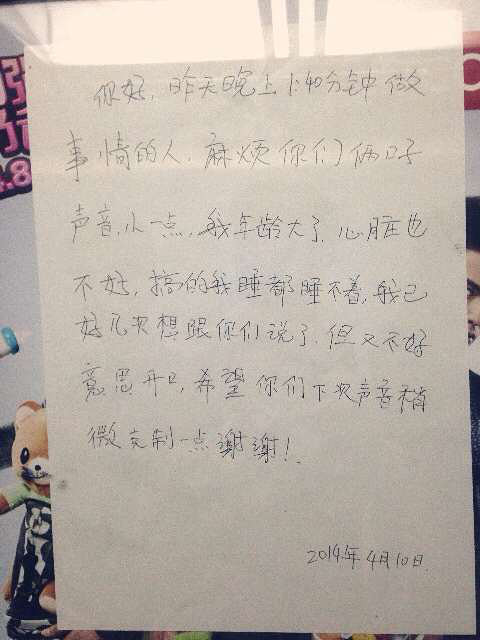 你好，昨天晚上1小40分钟做
事情的人，麻烦你们俩口子
声音小一点，我年龄大了，心脏也
不好，搞的我睡都睡不着，我已
好几次想跟你们说了，但又不好
意思开口，希望你们下次声音稍
微克制一点谢谢！
2014年4月10日